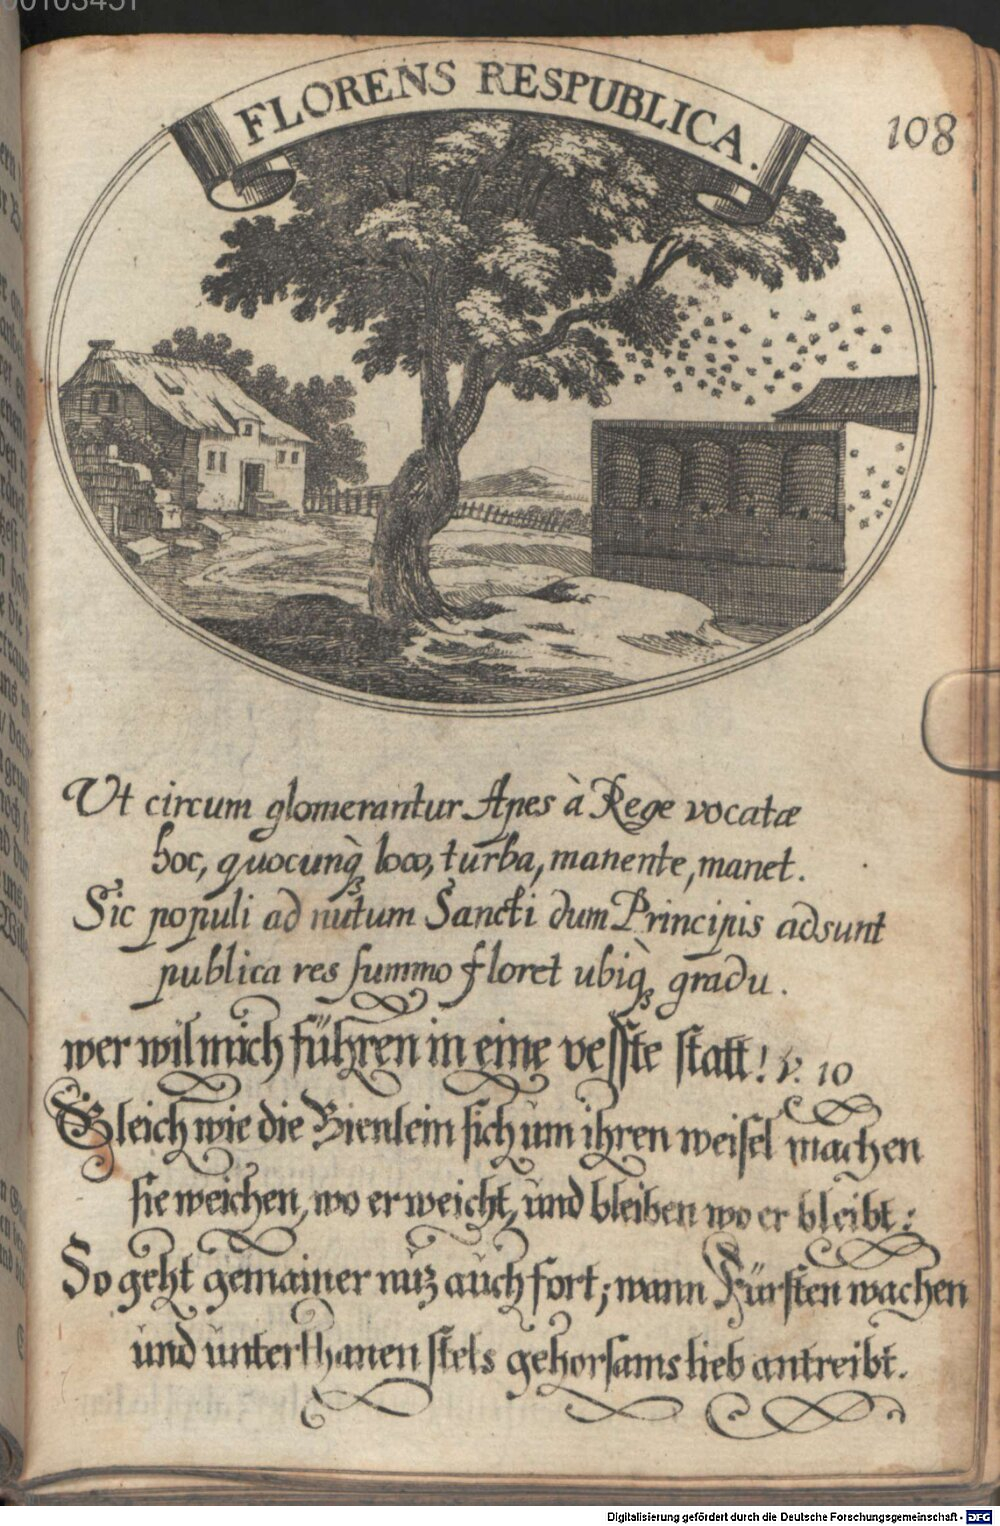 00103451
FLORENS RESPUBLICA.
108
Ut circum glomerantur Apes à Rege vocatæ
hoc, quocunq̀ꝫ loco, turba, manente, manet.
Sic populi ad nutum Sancti dum Principis adsunt
publica res summo floret ubiq̀ꝫ gradu.
wer wil mich führen in eine vesste statt! v. 10
Gleich wie die Bienlein sich um ihren weisel machen
sie weichen, wo er weicht, und bleiben wo er bleibt:
So geht gemainer nuz auch fort; wann Fürsten wachen
und unterthanen stets gehorsams lieb antreibt.
Digitalisierung gefördert durch die Deutsche Forschungsgemeinschaft - DFG